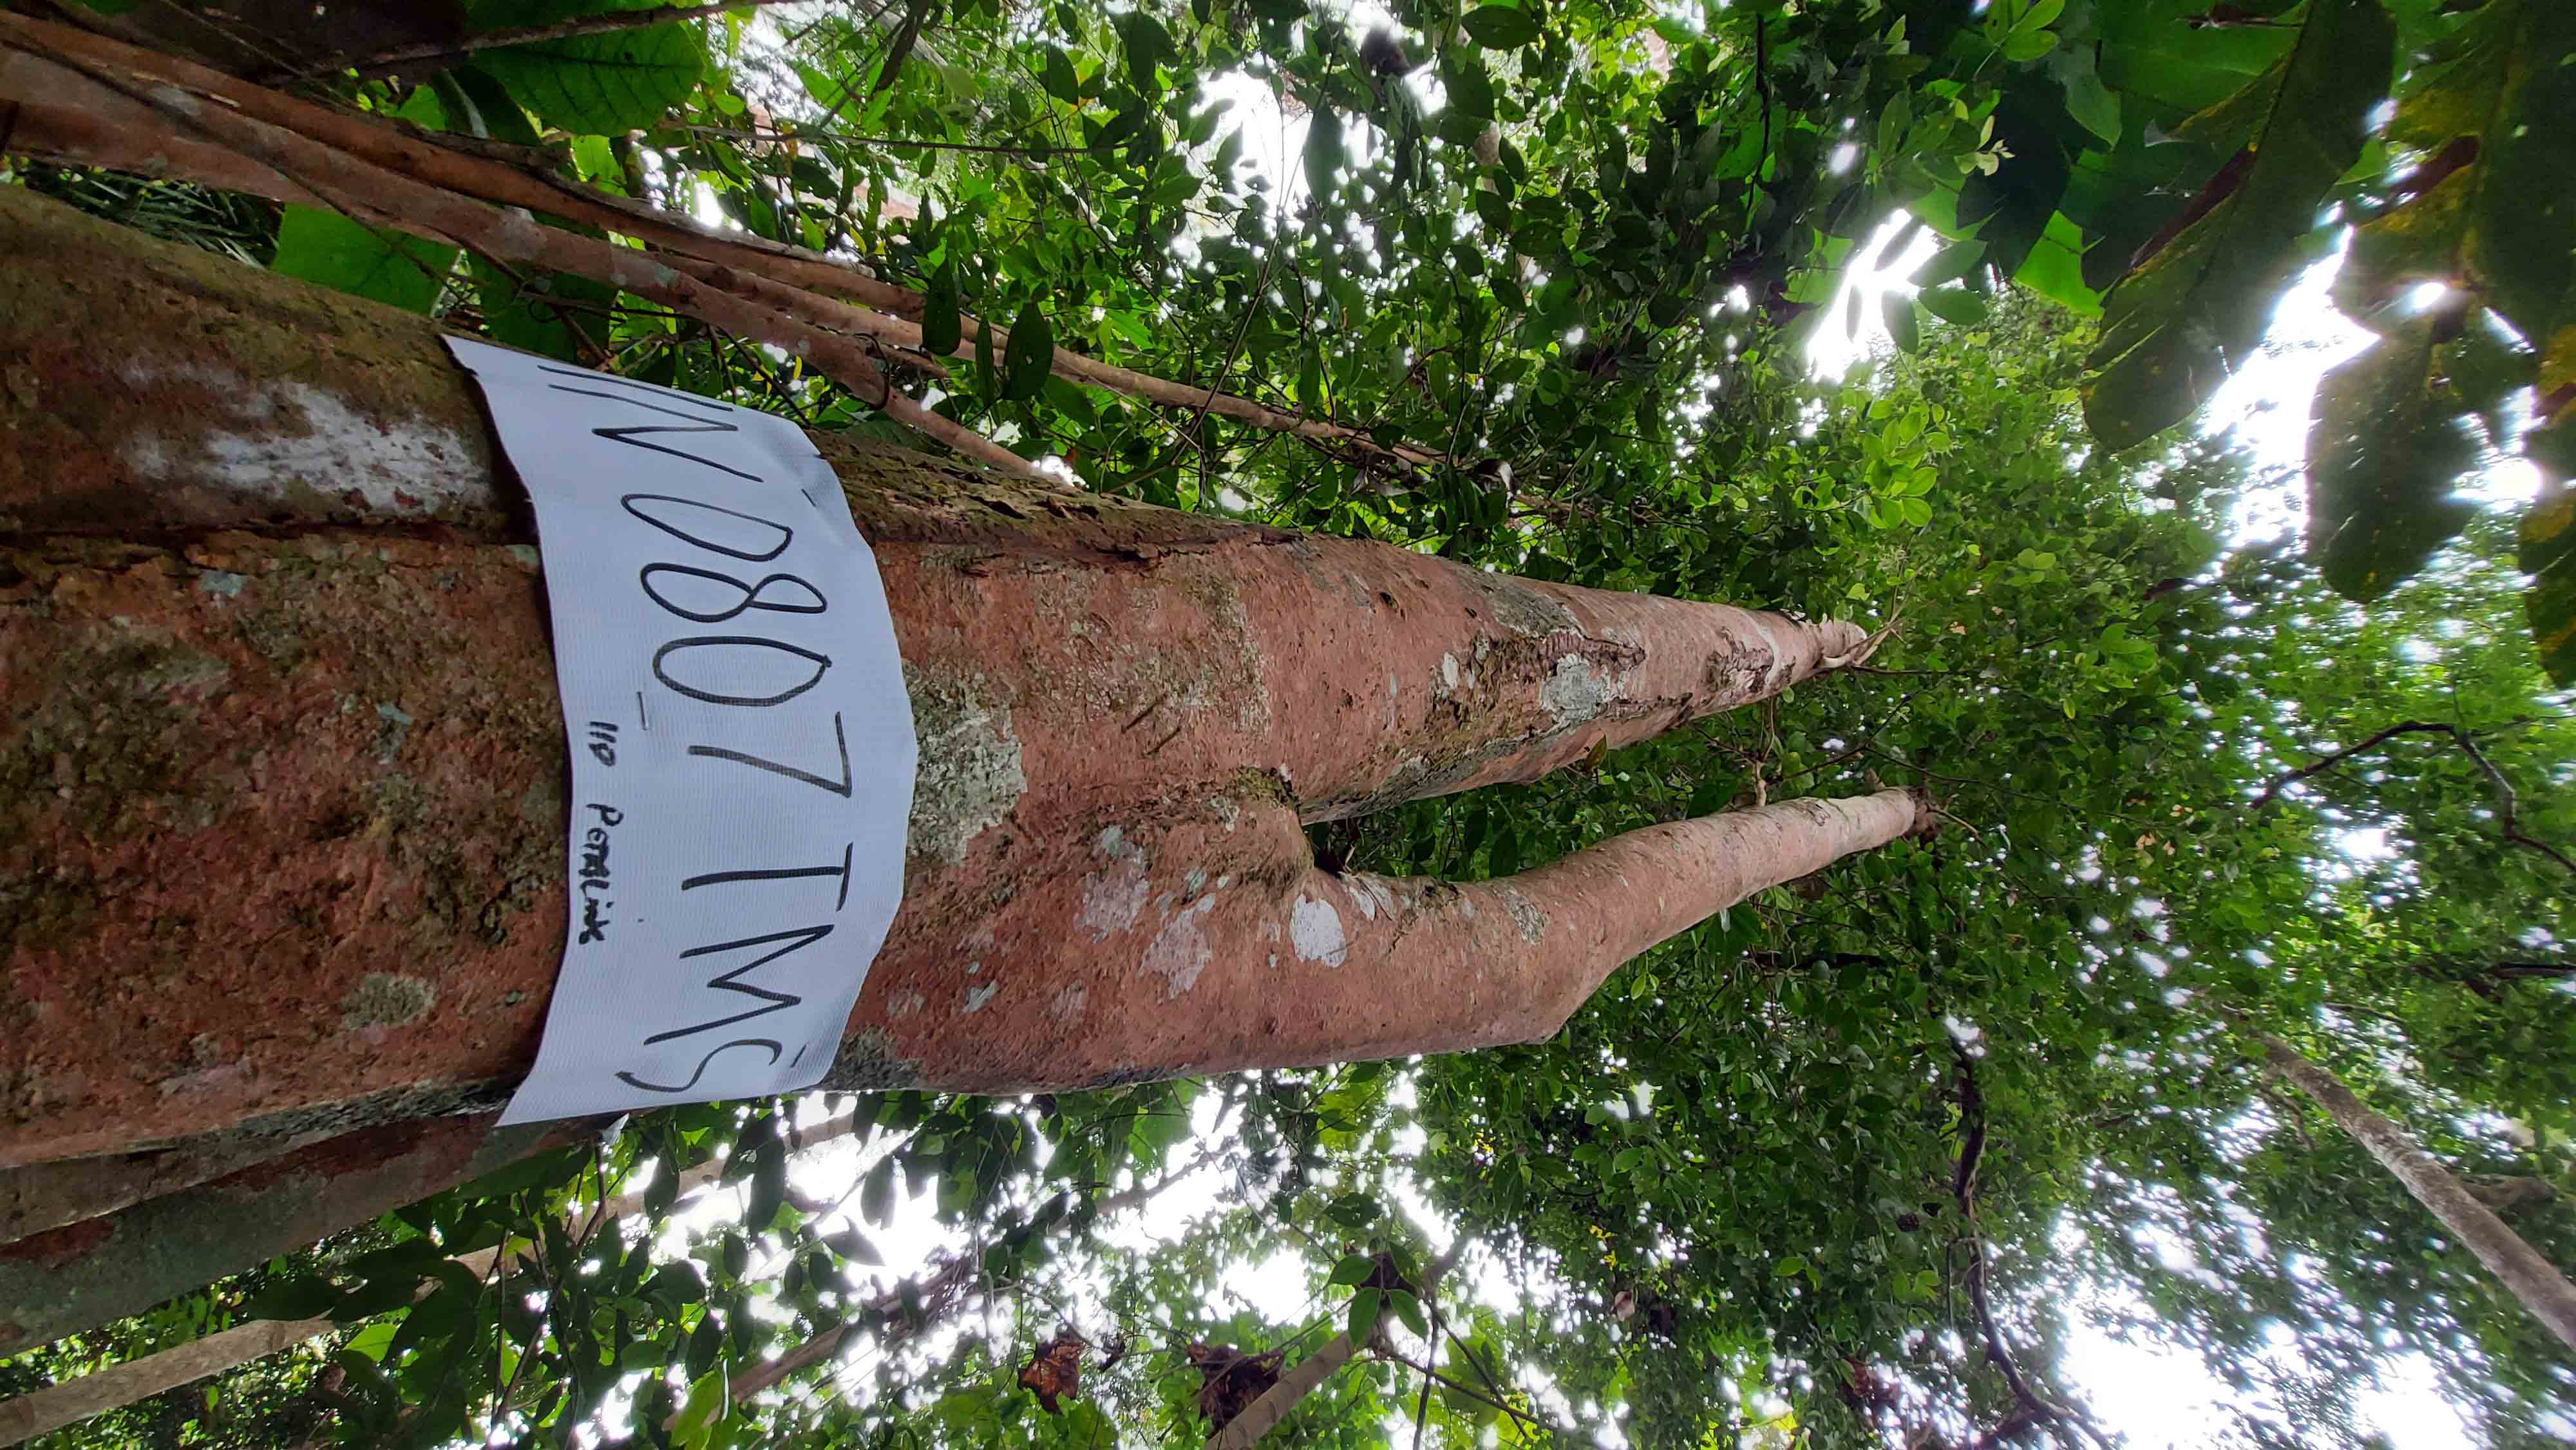 0807 TMS
110 PETALink